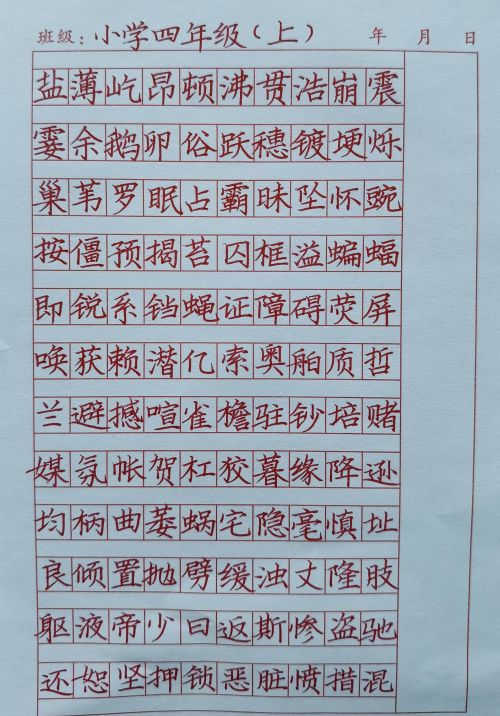 班级：小学四年级（上） 年 月 日
盐薄屹昂顿沸贯浩崩震
霎余鹅卵俗跃穗镀埂烁
巢苇罗眠占霸昧坠怀豌
按僵预揭苔囚框溢蝙蝠
即锐系铛蝇证障碍荧屏
唤获赖潜亿索奥舶质哲
兰避撼喧雀檐驻钞培赌
媒氛帐贺杠狡暮缘降逊
均柄曲萎蜗宅隐毫慎址
良倾置抛劈缓浊丈隆肢
躯液帝少曰返斯惨盗驰
还恕坚押锁恶脏愤措混